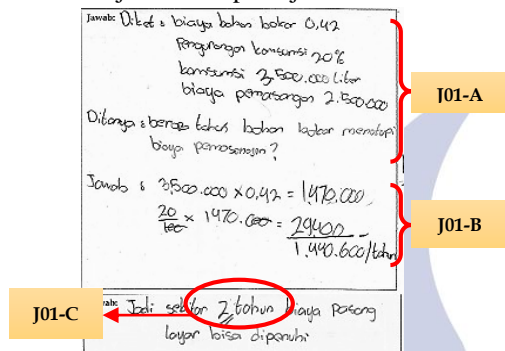 Jawab: Diket : biaya bahan bakar 0,42
Pengurangan konsumsi 20%
komsumsi 3.500.000 liter
biaya pemasangan 2.500.000
J01-A
Ditanya : berapa tahun bahan bakar menutupi
biaya pemasangan?
Jawab : 3500.000 x 0,42 = 1.470.000
20/100 x 1470.000 = 29400
1.440.600/tahun
J01-B
Jadi sekitar 2 tahun biaya pasang
layar bisa dipenuhi
J01-C